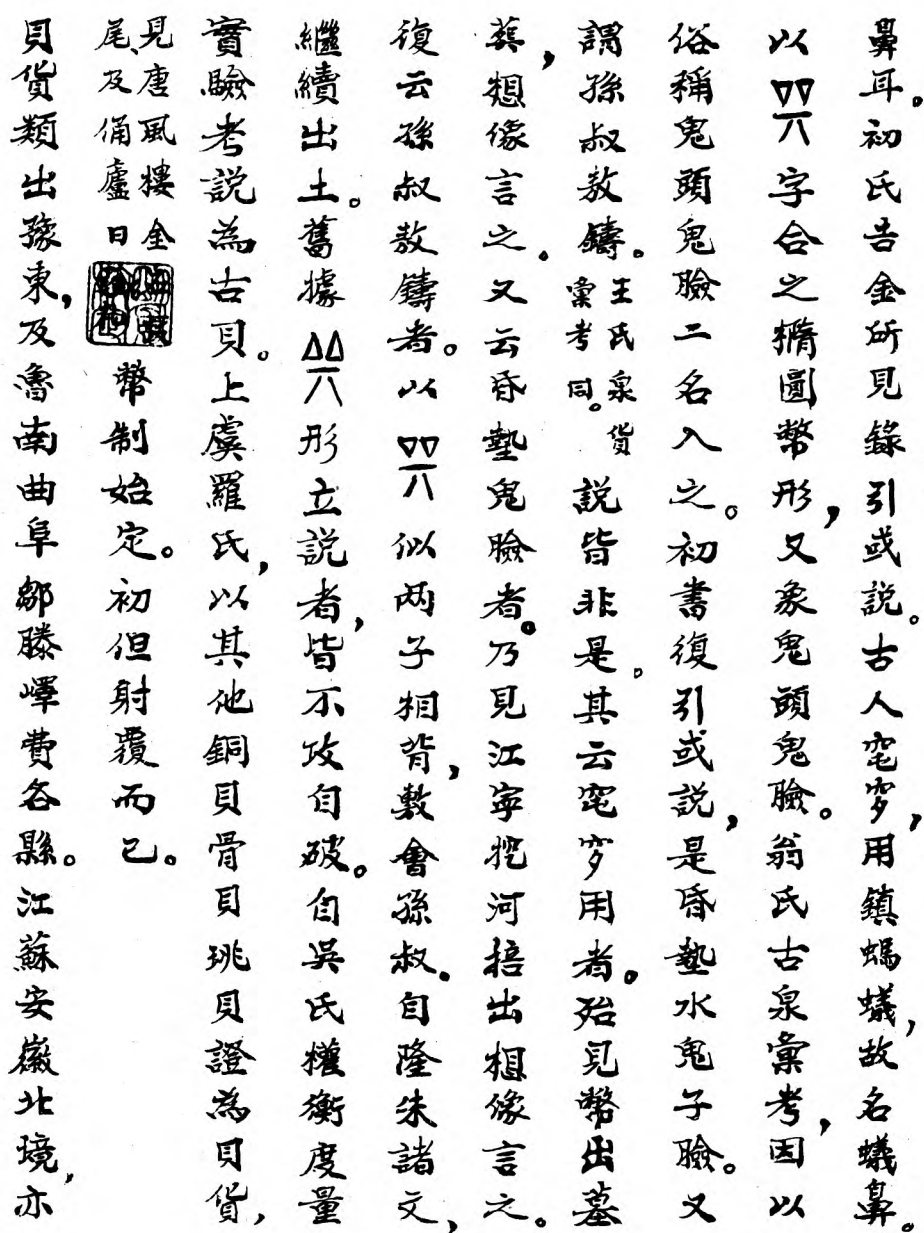 鼻耳。初氏吉金所見錄引或說。古人窀穸，用鎮螞蟻，故名蟻鼻。
以字合之橢圓幣形，又象鬼頭鬼臉。翁氏古泉彙考，因以
俗稱鬼頭鬼臉二名入之。初書復引或說，是昏墊水鬼子臉。又
謂孫叔敖鑄。王氏泉貨彙考同。說皆非是。其云窀穸用者。殆見幣出墓
葬，想像言之。又云昏墊鬼臉者。乃見江寧挖河掊出想像言之。
復云孫叔敖鑄者。以似两子相背，敷會孫叔。自隆朱諸文，
繼續出土。舊據形立說者，皆不攻自破。自吳氏權衡度量
實驗考說為古貝。上虞羅氏，以其他銅貝骨貝珧貝證為貝貨，
見唐風樓金
尾、及俑廬日
幣制始定。初但射覆而已。
貝貨類出豫東，及魯南曲阜鄒滕嶧費各縣。江蘇安徽北境，亦